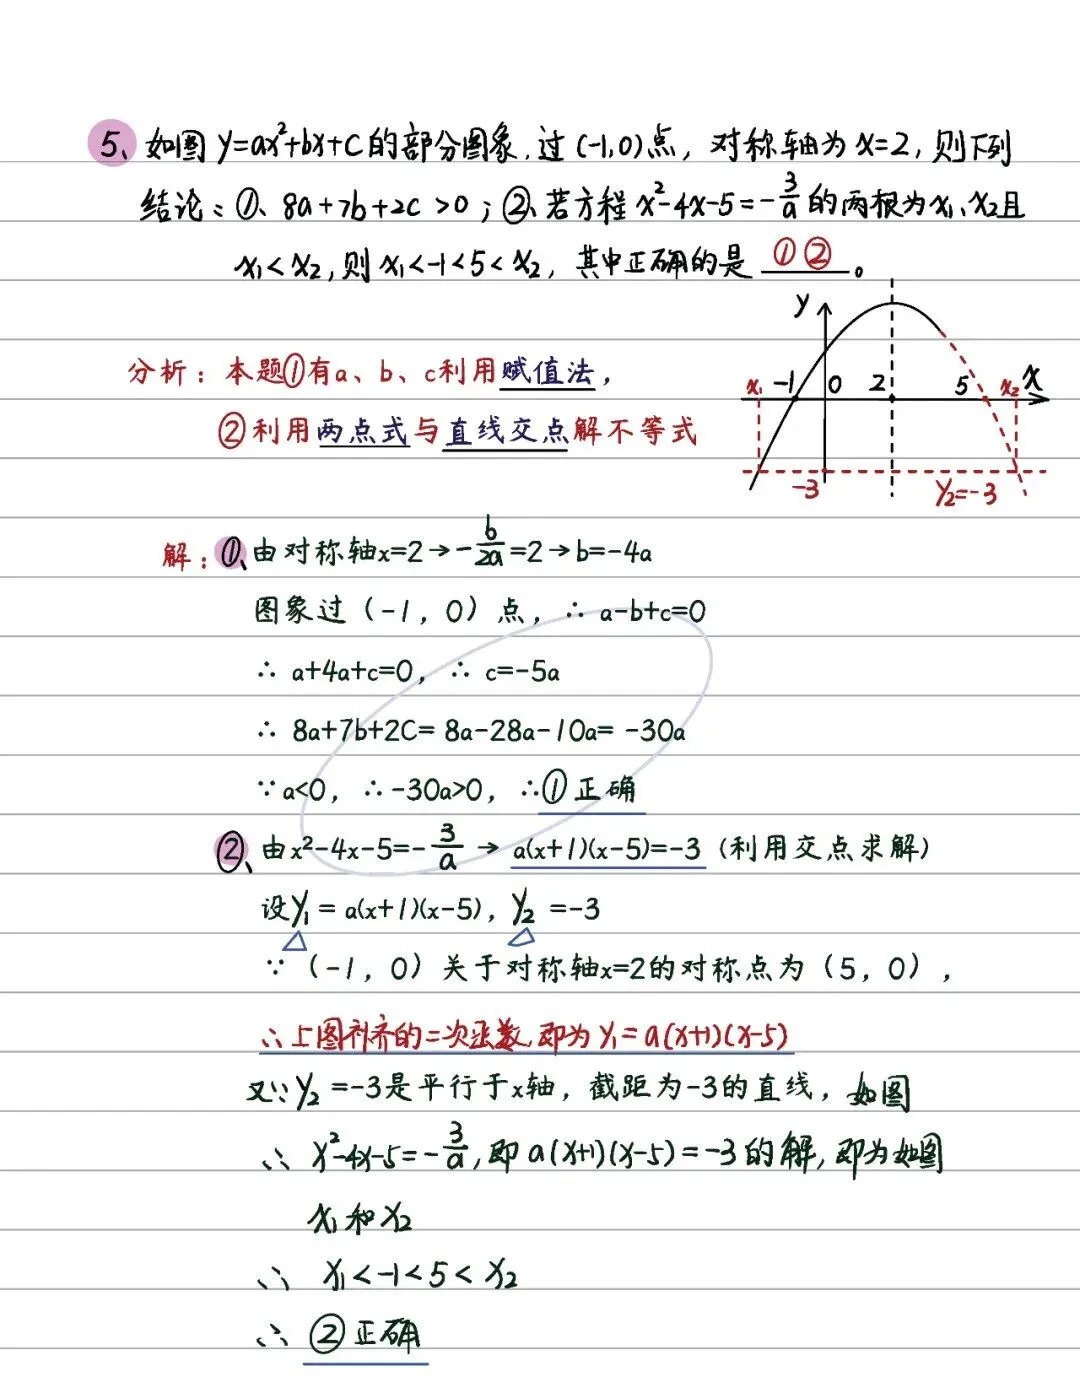 5、如图 y=ax²+bx+c的部分图象,过(-1,0)点,对称轴为x=2,则下列
结论:①、8a+7b+2c>0;②、若方程x²-4x-5=-3/a的两根为x₁、x₂且
x₁<x₂,则x₁<-1<5<x₂,其中正确的是 ①② 。
y
x₁ -1 0 2 5 x₂ x
-3 y₂=-3
分析:本题①有a、b、c利用赋值法,
②利用两点式与直线交点解不等式
解:①、由对称轴x=2→-b/2a=2→b=-4a
图象过(-1,0)点,∴ a-b+c=0
∴ a+4a+c=0,∴ c=-5a
∴ 8a+7b+2C=8a-28a-10a=-30a
∵a<0,∴-30a>0,∴①正确
②、由x²-4x-5=-3/a → a(x+1)(x-5)=-3(利用交点求解)
设y₁=a(x+1)(x-5),y₂=-3
∵(-1,0)关于对称轴x=2的对称点为(5,0),
∴上图补齐的二次函数,即为y₁=a(x+1)(x-5)
又∵y₂=-3是平行于x轴,截距为-3的直线,如图
∴ x²-4x-5=-3/a,即a(x+1)(x-5)=-3的解,即为如图
x₁和x₂
∴ x₁<-1<5<x₂
∴ ②正确